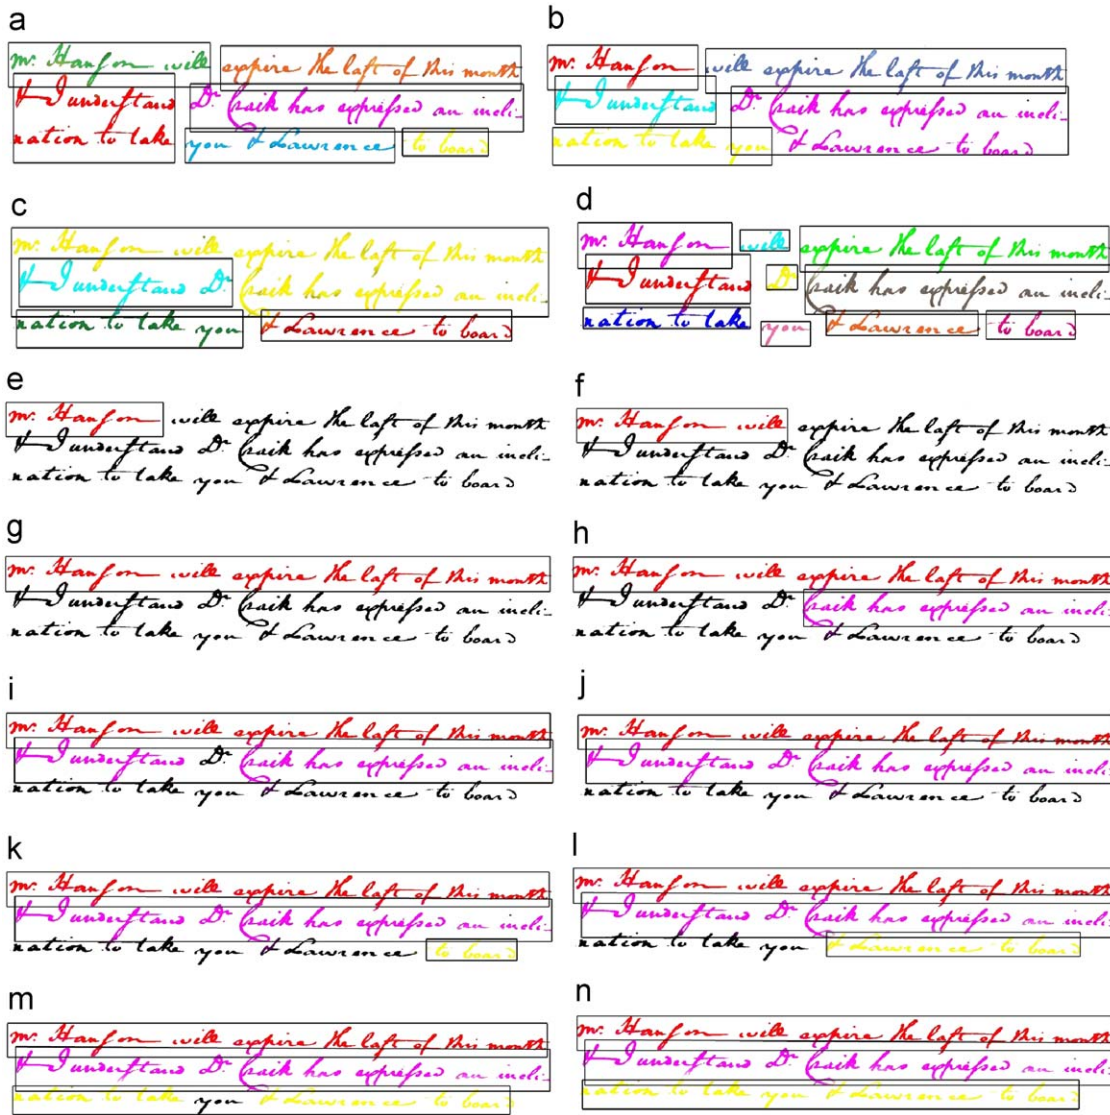 a
Mr. Hanson will expire the last of this month
& I understand Dr. Craik has expressed an incli-
nation to take you & Lawrence to board
b
Mr. Hanson will expire the last of this month
& I understand Dr. Craik has expressed an incli-
nation to take you & Lawrence to board
c
Mr. Hanson will expire the last of this month
& I understand Dr. Craik has expressed an incli-
nation to take you & Lawrence to board
d
Mr. Hanson will expire the last of this month
& I understand Dr. Craik has expressed an incli-
nation to take you & Lawrence to board
e
Mr. Hanson will expire the last of this month
& I understand Dr. Craik has expressed an incli-
nation to take you & Lawrence to board
f
Mr. Hanson will expire the last of this month
& I understand Dr. Craik has expressed an incli-
nation to take you & Lawrence to board
g
Mr. Hanson will expire the last of this month
& I understand Dr. Craik has expressed an incli-
nation to take you & Lawrence to board
h
Mr. Hanson will expire the last of this month
& I understand Dr. Craik has expressed an incli-
nation to take you & Lawrence to board
i
Mr. Hanson will expire the last of this month
& I understand Dr. Craik has expressed an incli-
nation to take you & Lawrence to board
j
Mr. Hanson will expire the last of this month
& I understand Dr. Craik has expressed an incli-
nation to take you & Lawrence to board
k
Mr. Hanson will expire the last of this month
& I understand Dr. Craik has expressed an incli-
nation to take you & Lawrence to board
l
Mr. Hanson will expire the last of this month
& I understand Dr. Craik has expressed an incli-
nation to take you & Lawrence to board
m
Mr. Hanson will expire the last of this month
& I understand Dr. Craik has expressed an incli-
nation to take you & Lawrence to board
n
Mr. Hanson will expire the last of this month
& I understand Dr. Craik has expressed an incli-
nation to take you & Lawrence to board